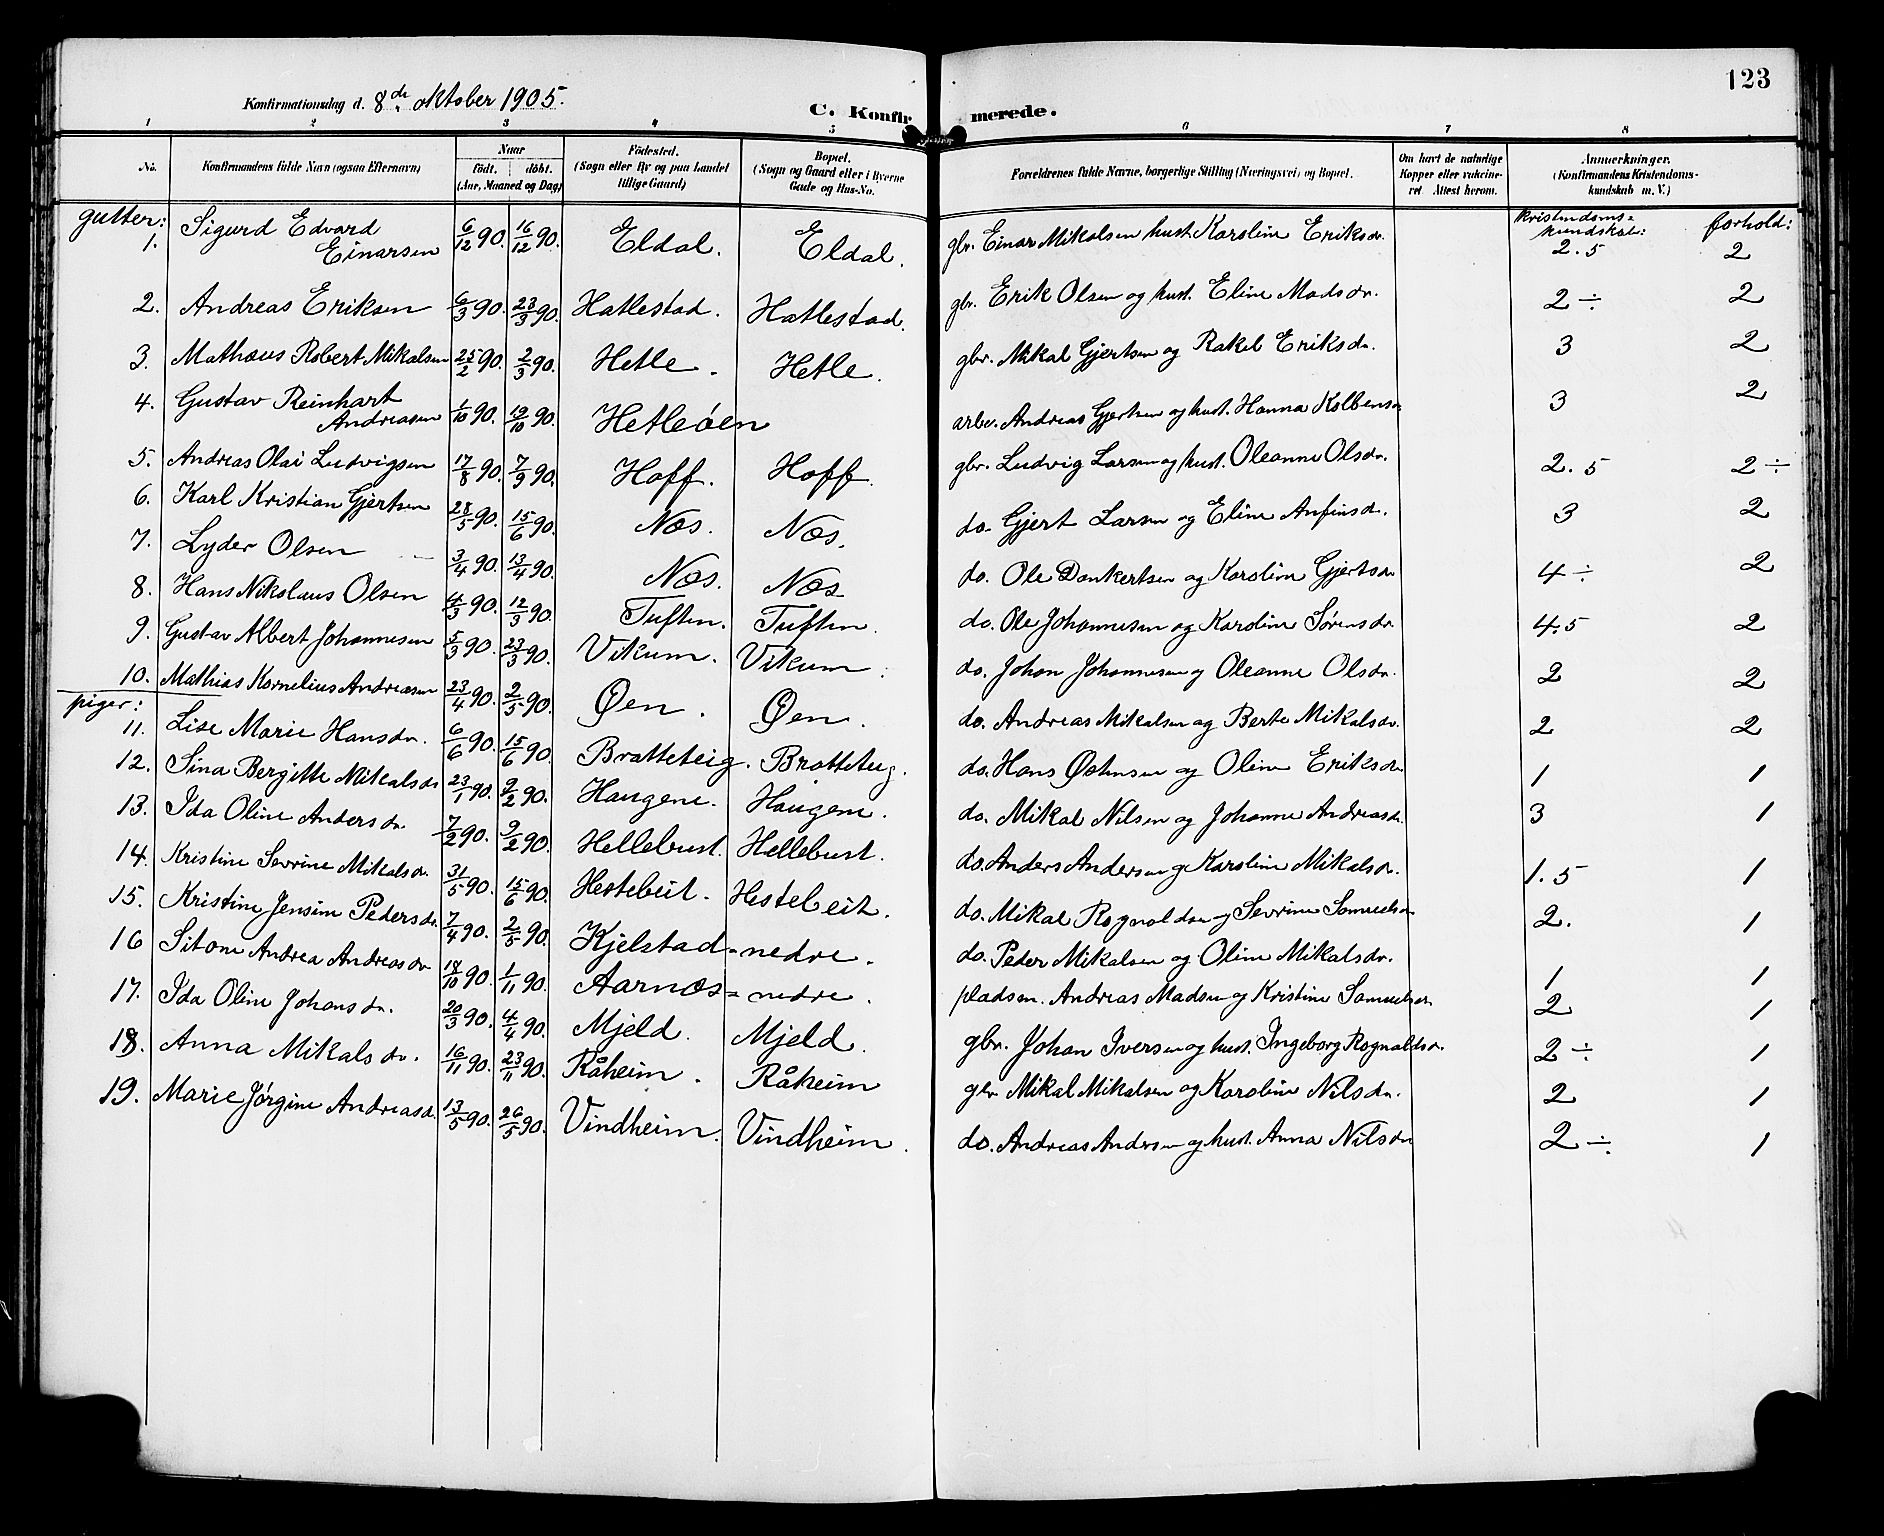 123
Konfirmationsdag d. 8de oktober 1905.
C. Konfirmerede.
1 2 3 4 5 6 7 8
No. Konfirmandens fulde Navn (ogsaa Efternavn) Naar født. døbt. (Aar, Maaned og Dag) Fødested. (Sogn eller By og paa Landet tillige Gaard) Bopæl. (Sogn og Gaard eller i Byerne Gade og Hus-No. Forældrenes fulde Navne, borgerlige Stilling (Næringsvei) og Bopæl. Om havt de naturlige Kopper eller vaccineret. Attest herom. Anmærkninger. (Konfirmandens Kristendomskundskab m. V.)
gutter: kristendoms= kundskab: forhold:
1. Sigurd Edvard Einarsen 6/12 90. 16/12 90. Eldal. Eldal. gbr. Einar Mikalsen hust. Karoline Eriksdr. 2.5 2
2. Andreas Eriksen 6/3 90. 23/3 90. Hatlestad. Hatlestad. gbr. Erik Olsen og hust. Eline Madsdr. 2÷ 2
3. Mathæus Robert Mikalsen 25/2 90. 2/3 90. Hetle. Hetle. gbr. Mikal Gjertsen og Rakel Eriksdr. 3 2
4. Gustav Reinhart Andreasen 1/10 90. 19/10 90. Hetleøen arbr. Andreas Gjertsen og hust. Hanna Kolbensdr 3 2
5. Andreas Olai Ludvigsen 17/8 90. 7/9 90. Hoff. Hoff. gbr. Ludvig Larsen og hust. Oleanne Olsdr. 2.5 2÷
6. Karl Kristian Gjertsen 28/5 90. 15/6 90. Næs. Næs. do. Gjert Larsen og Eline Anfinsdr. 3 2
7. Lyder Olsen 3/4 90. 13/4 90. Næs. Næs do. Ole Dankertsen og Karoline Gjertsdr 4÷ 2
8. Hans Nikolaus Olsen 4/3 90. 12/3 90. Tuften. Tuften. do. Ole Johannesen og Karoline Sørensdr. 4.5 2
9. Gustav Albert Johannesen 5/3 90. 23/3 90. Vikum. Vikum. do. Johan Johannesen og Oleanne Olsdr. 2 2
10. Mathias Kornelius Andreasen 23/4 90. 2/5 90. Øen. Øen. do. Andreas Mikalsen og Berte Mikalsdr. 2 2
piger:
11. Lise Marie Hansdr. 6/6 90. 15/6 90. Bratteteig. Bratteteig. do. Hans Østensen og Oline Eriksdr 1 1
12. Sina Bergitte Mikalsdr 23/1 90. 9/2 90. Haugene. Haugene. do. Mikal Nilsen og Johanne Andreasdr. 3 1
13. Ida Oline Andersdr. 7/2 90. 9/2 90. Hellebust. Hellebust. do. Anders Andersen og Karoline Mikalsdr. 1.5 1
14. Kristine Sevrine Mikalsdr. 31/5 90. 15/6 90. Hestebeit. Hestebeit. do. Mikal Rognaldsen og Sevrine Samuelsdr 2. 1
15. Kristine Jensine Pedersdr. 7/4 90. 2/5 90. Kjelstad=nedre. do. Peder Mikalsen og Oline Mikalsdr. 1 1
16 Sitone Andrea Andreasdr 18/10 90. 1/11 90. Aarnæs=nedre. pladsm. Andreas Madsen og Kristine Samuelsdr. 2 1
17. Ida Oline Johansdr. 20/3 90. 4/4 90. Mjeld. Mjeld. gbr. Johan Iversen og hust. Ingeborg Rognaldsdr. 2÷ 1
18. Anna Mikalsdr. 16/11 90. 23/11 90. Råheim. Råheim gbr Mikal Mikalsen og Karoline Nilsdr. 2 1
19. Marie Jørgine Andreasdr. 13/5 90. 26/5 90. Vindheim. Vindheim. do. Andreas Andersen og hust. Anna Nilsdr 2÷ 1